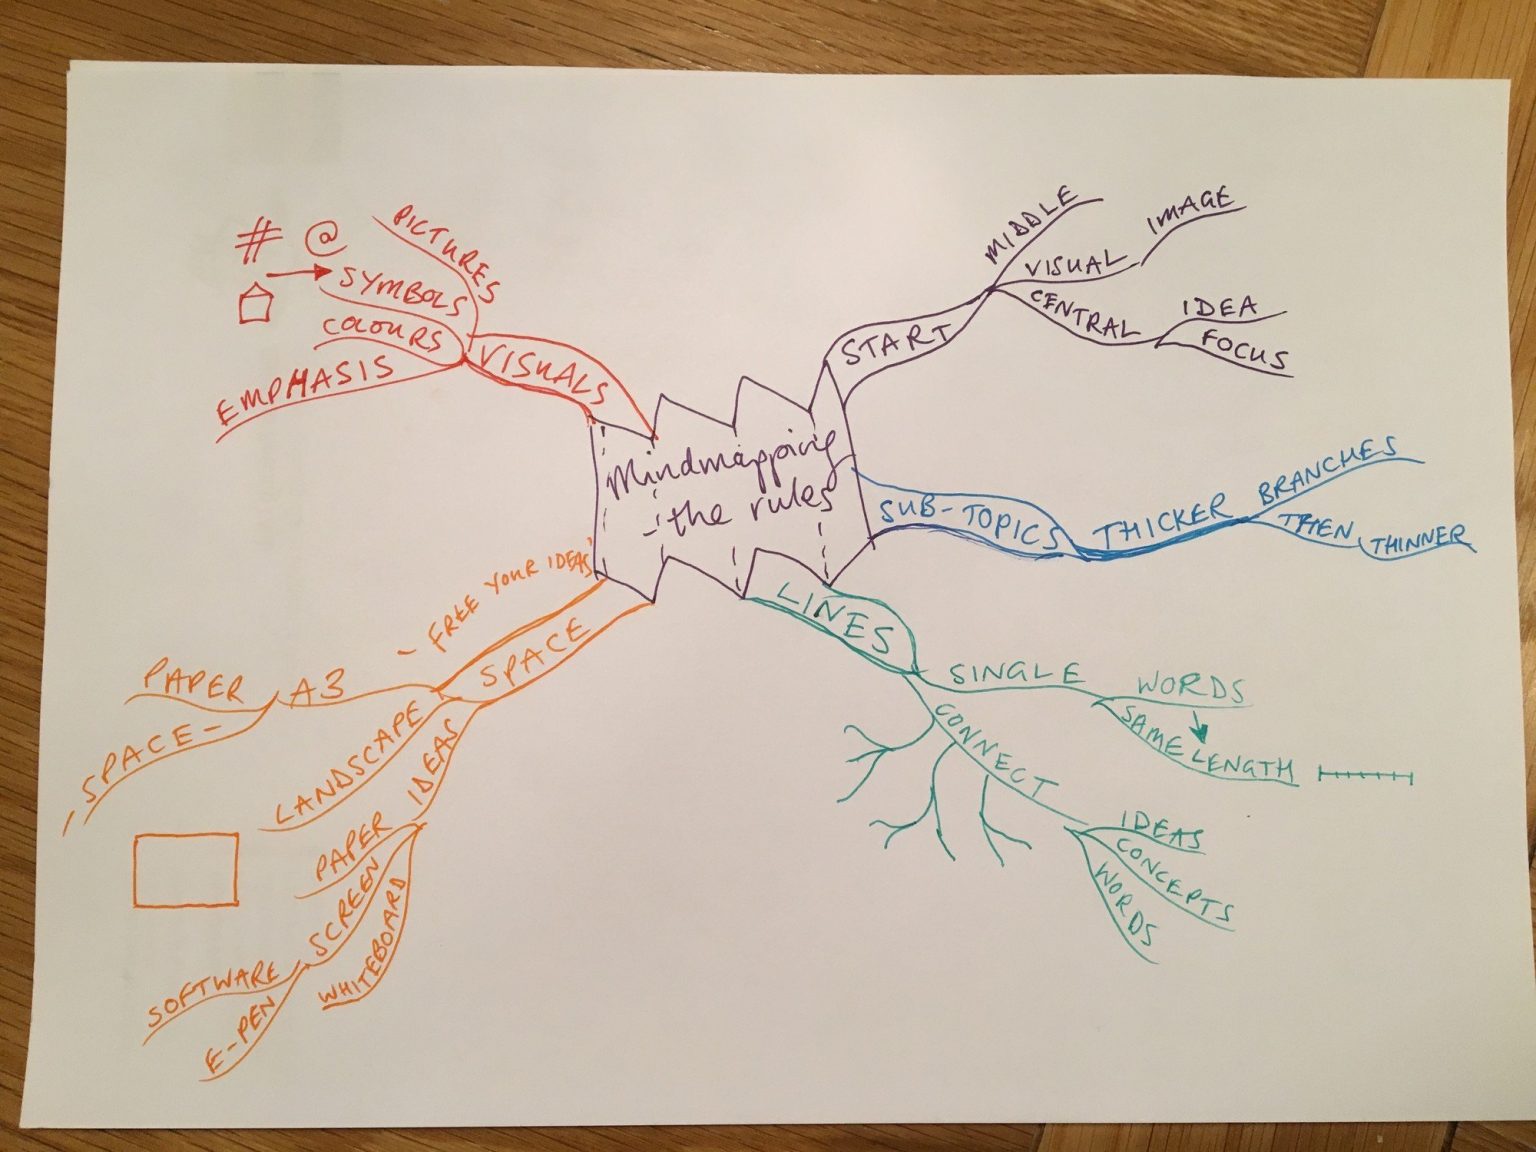 Mindmapping
- the rules
START
MIDDLE
VISUAL
IMAGE
CENTRAL
IDEA
FOCUS
SUB-TOPICS
THICKER
BRANCHES
THEN
THINNER
LINES
SINGLE
WORDS
SAME LENGTH
CONNECT
IDEAS
CONCEPTS
WORDS
SPACE
- FREE YOUR IDEAS
A3
PAPER
SPACE -
LANDSCAPE
IDEAS
PAPER
SCREEN
SOFTWARE
E-PEN
WHITEBOARD
VISUALS
PICTURES
SYMBOLS
# @
COLOURS
EMPHASIS